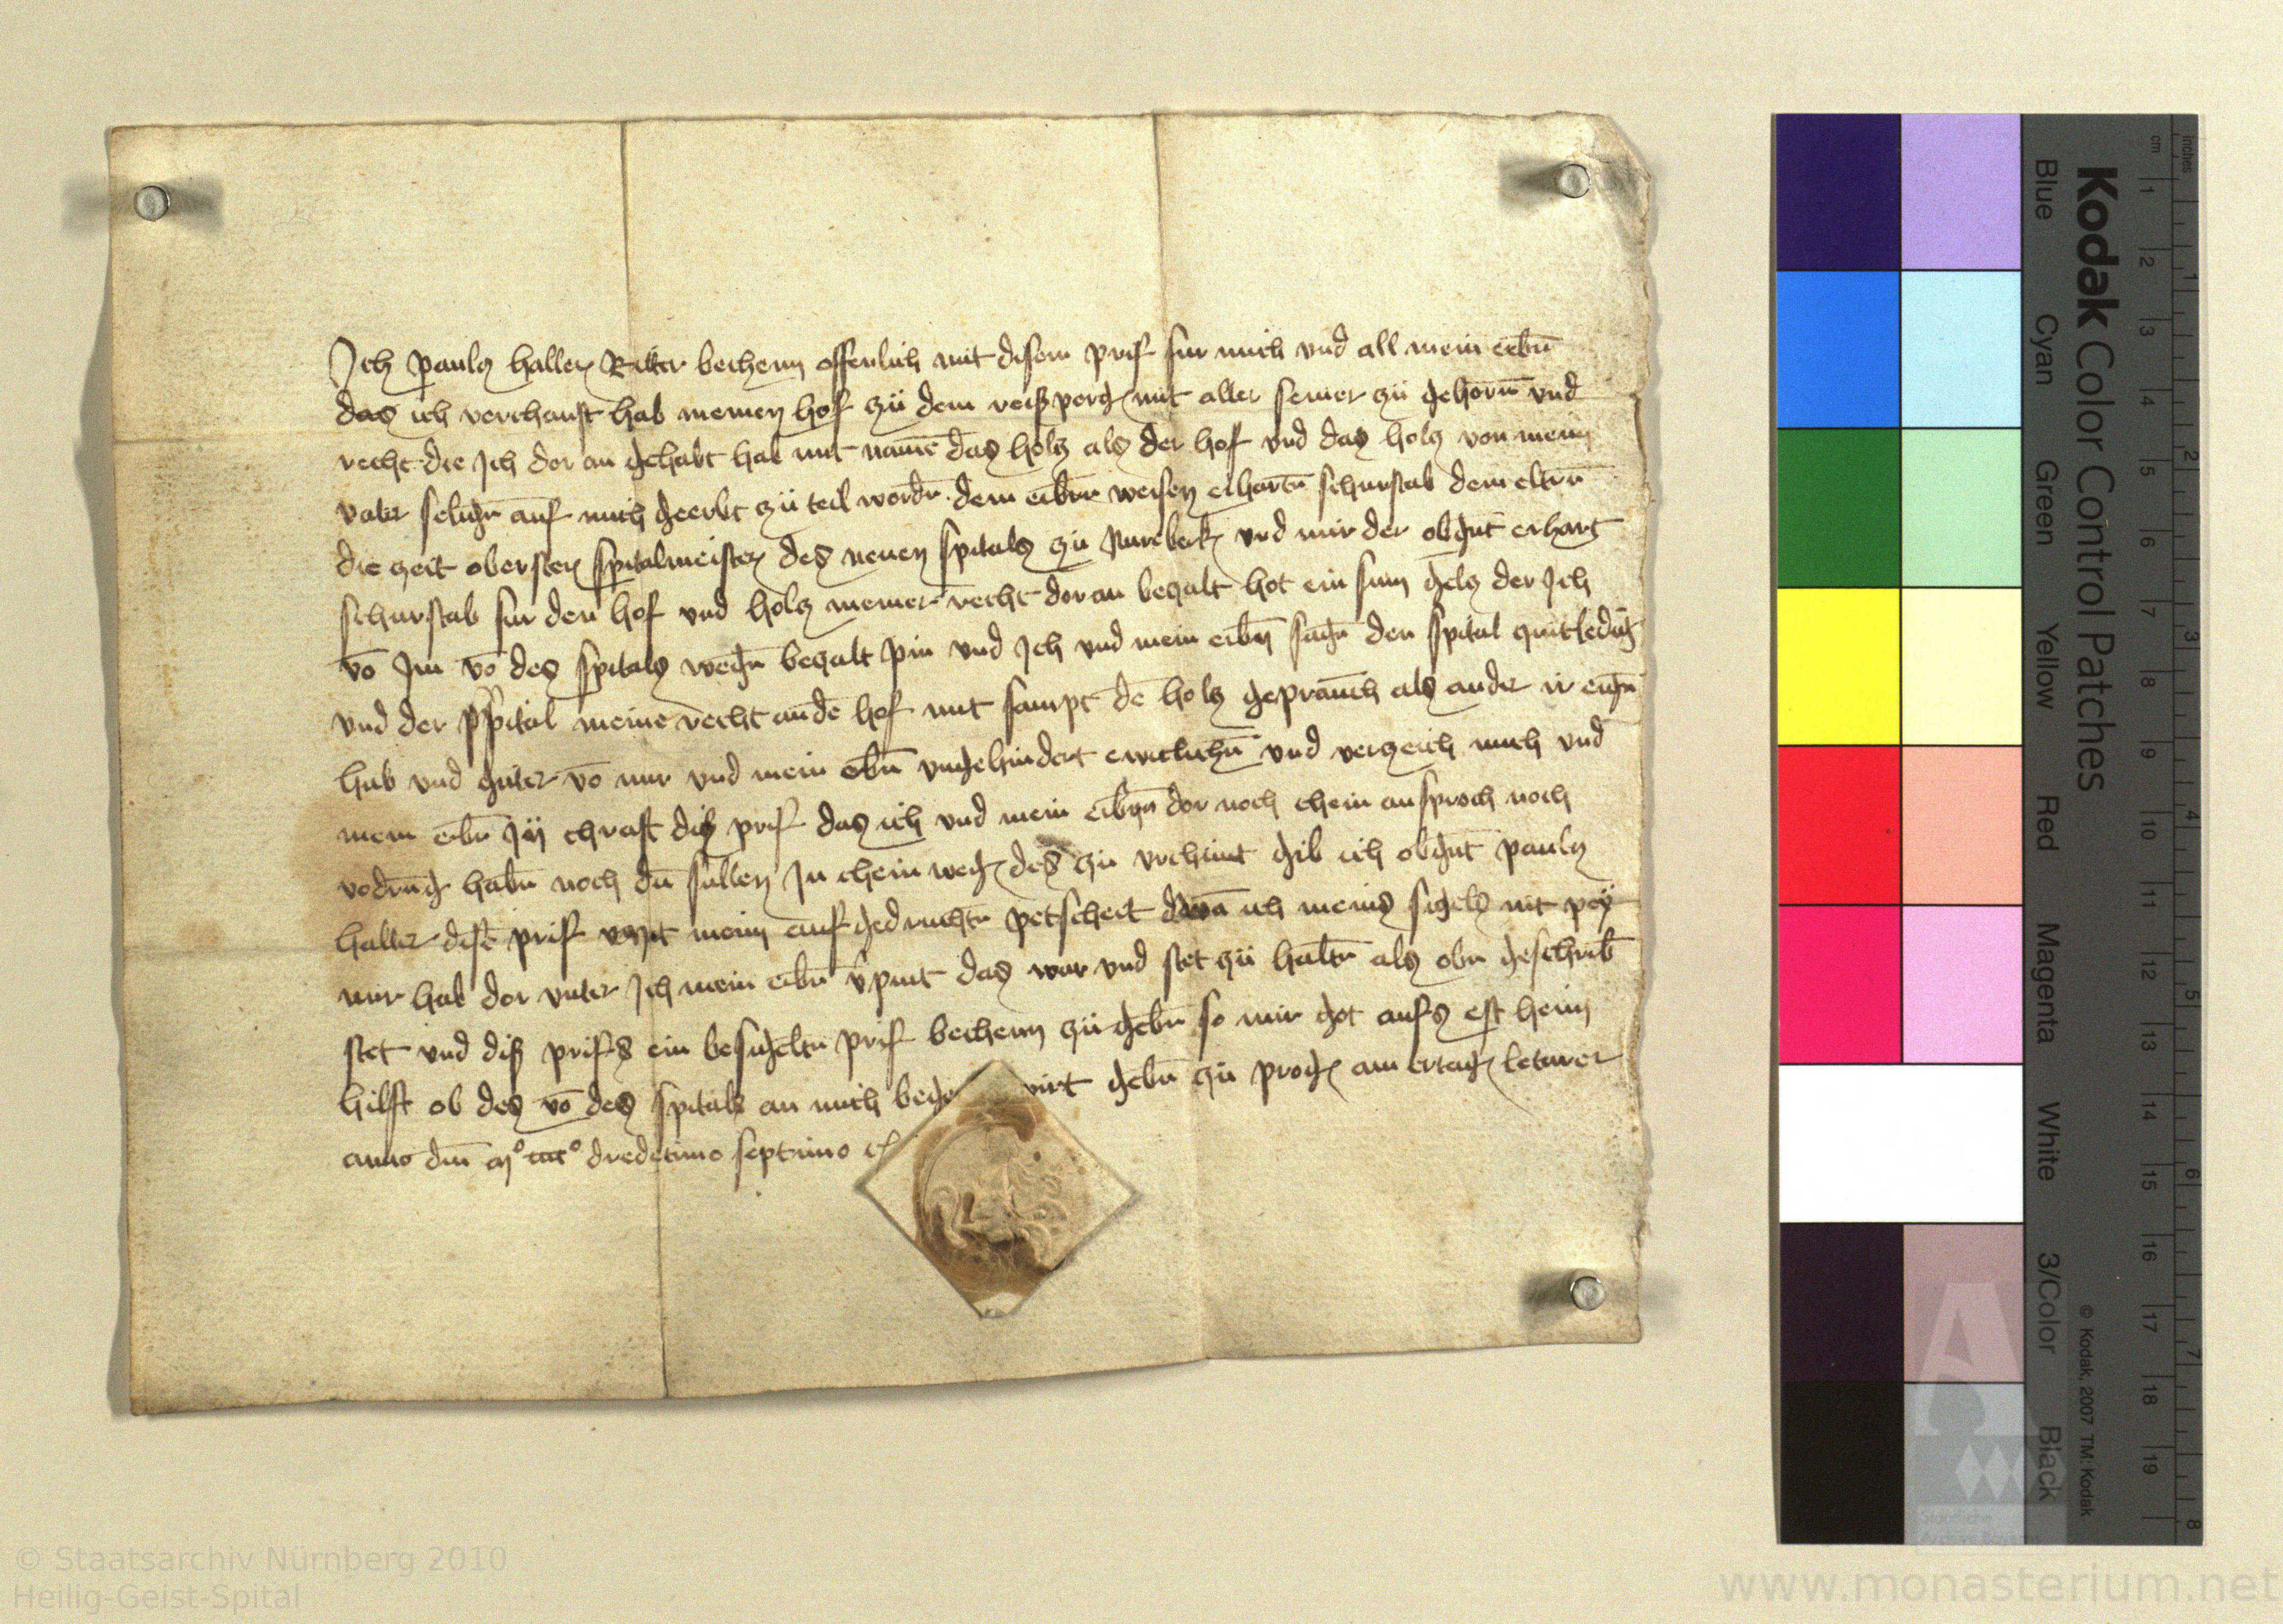 Ich paulß haller Ritter bechenn offenlich mit disem prif fur mich vnd all mein erbn̄
das ich verchauft hab meinen hof zü dem reißperg mit aller seiner zü gehorn̄ vnd
recht die Ich dor an gehabt hab mit namē das holz als der hof vnd das holz von meim
vater selign̄ auf mich geerbt zü teil wordn̄ dem erbrn̄ weisen erhartn̄ schurstab dem eltrn̄
die zeit obersten spitalmeister des neuen spitals zü Nurcberk vnd mir der obgn̄t erhart
schurstab fur den hof vnd holz meiner recht doran beczalt hot ein sum gelz der Ich
vō Im vō des spitals wegn̄ beczalt pin vnd Ich vnd mein erbn̄ sagn̄ den spital quitledig
vnd der spital meine recht an dē hof mit sampt dē holz geprauch als ander ir eign̄
hab vnd guter vō mir vnd mein erbn̄ vngehindert ewiclichn̄ vnd verzeich mich vnd
mein erbn̄ In chraft diß prif das ich vnd mein erbn̄ dor noch chein ansproch noch
vodrūg habn̄ noch dū sullen In chein weg des zü vrchunt gib ich obgn̄t paulß
haller disē prif mit meim auf gedruchtn̄ petscheit wā ich meins sigels nit pey
mir hab dor vnter Ich mein erbn̄ v̄pint das war vnd stet zü haltn̄ als obn̄ geschrib̄
stet vnd diß prifs ein besigeltn̄ prif bechenn zü gebn̄ so mir got aufs erst heim
hilft ob des vō des spitals an mich bege wirt gebn̄ zü prog am ertag letarer
anno dn̄i mº cccº dredecimo septimo
Kodak Color Control Patches
Blue Cyan Green Yellow Red Magenta White 3/Color Black
© Kodak, 2007 TM: Kodak
inches 1 2 3 4 5 6 7 8
cm 1 2 3 4 5 6 7 8 9 10 11 12 13 14 15 16 17 18 19
© Staatsarchiv Nürnberg 2010
Heilig-Geist-Spital
www.monasterium.net